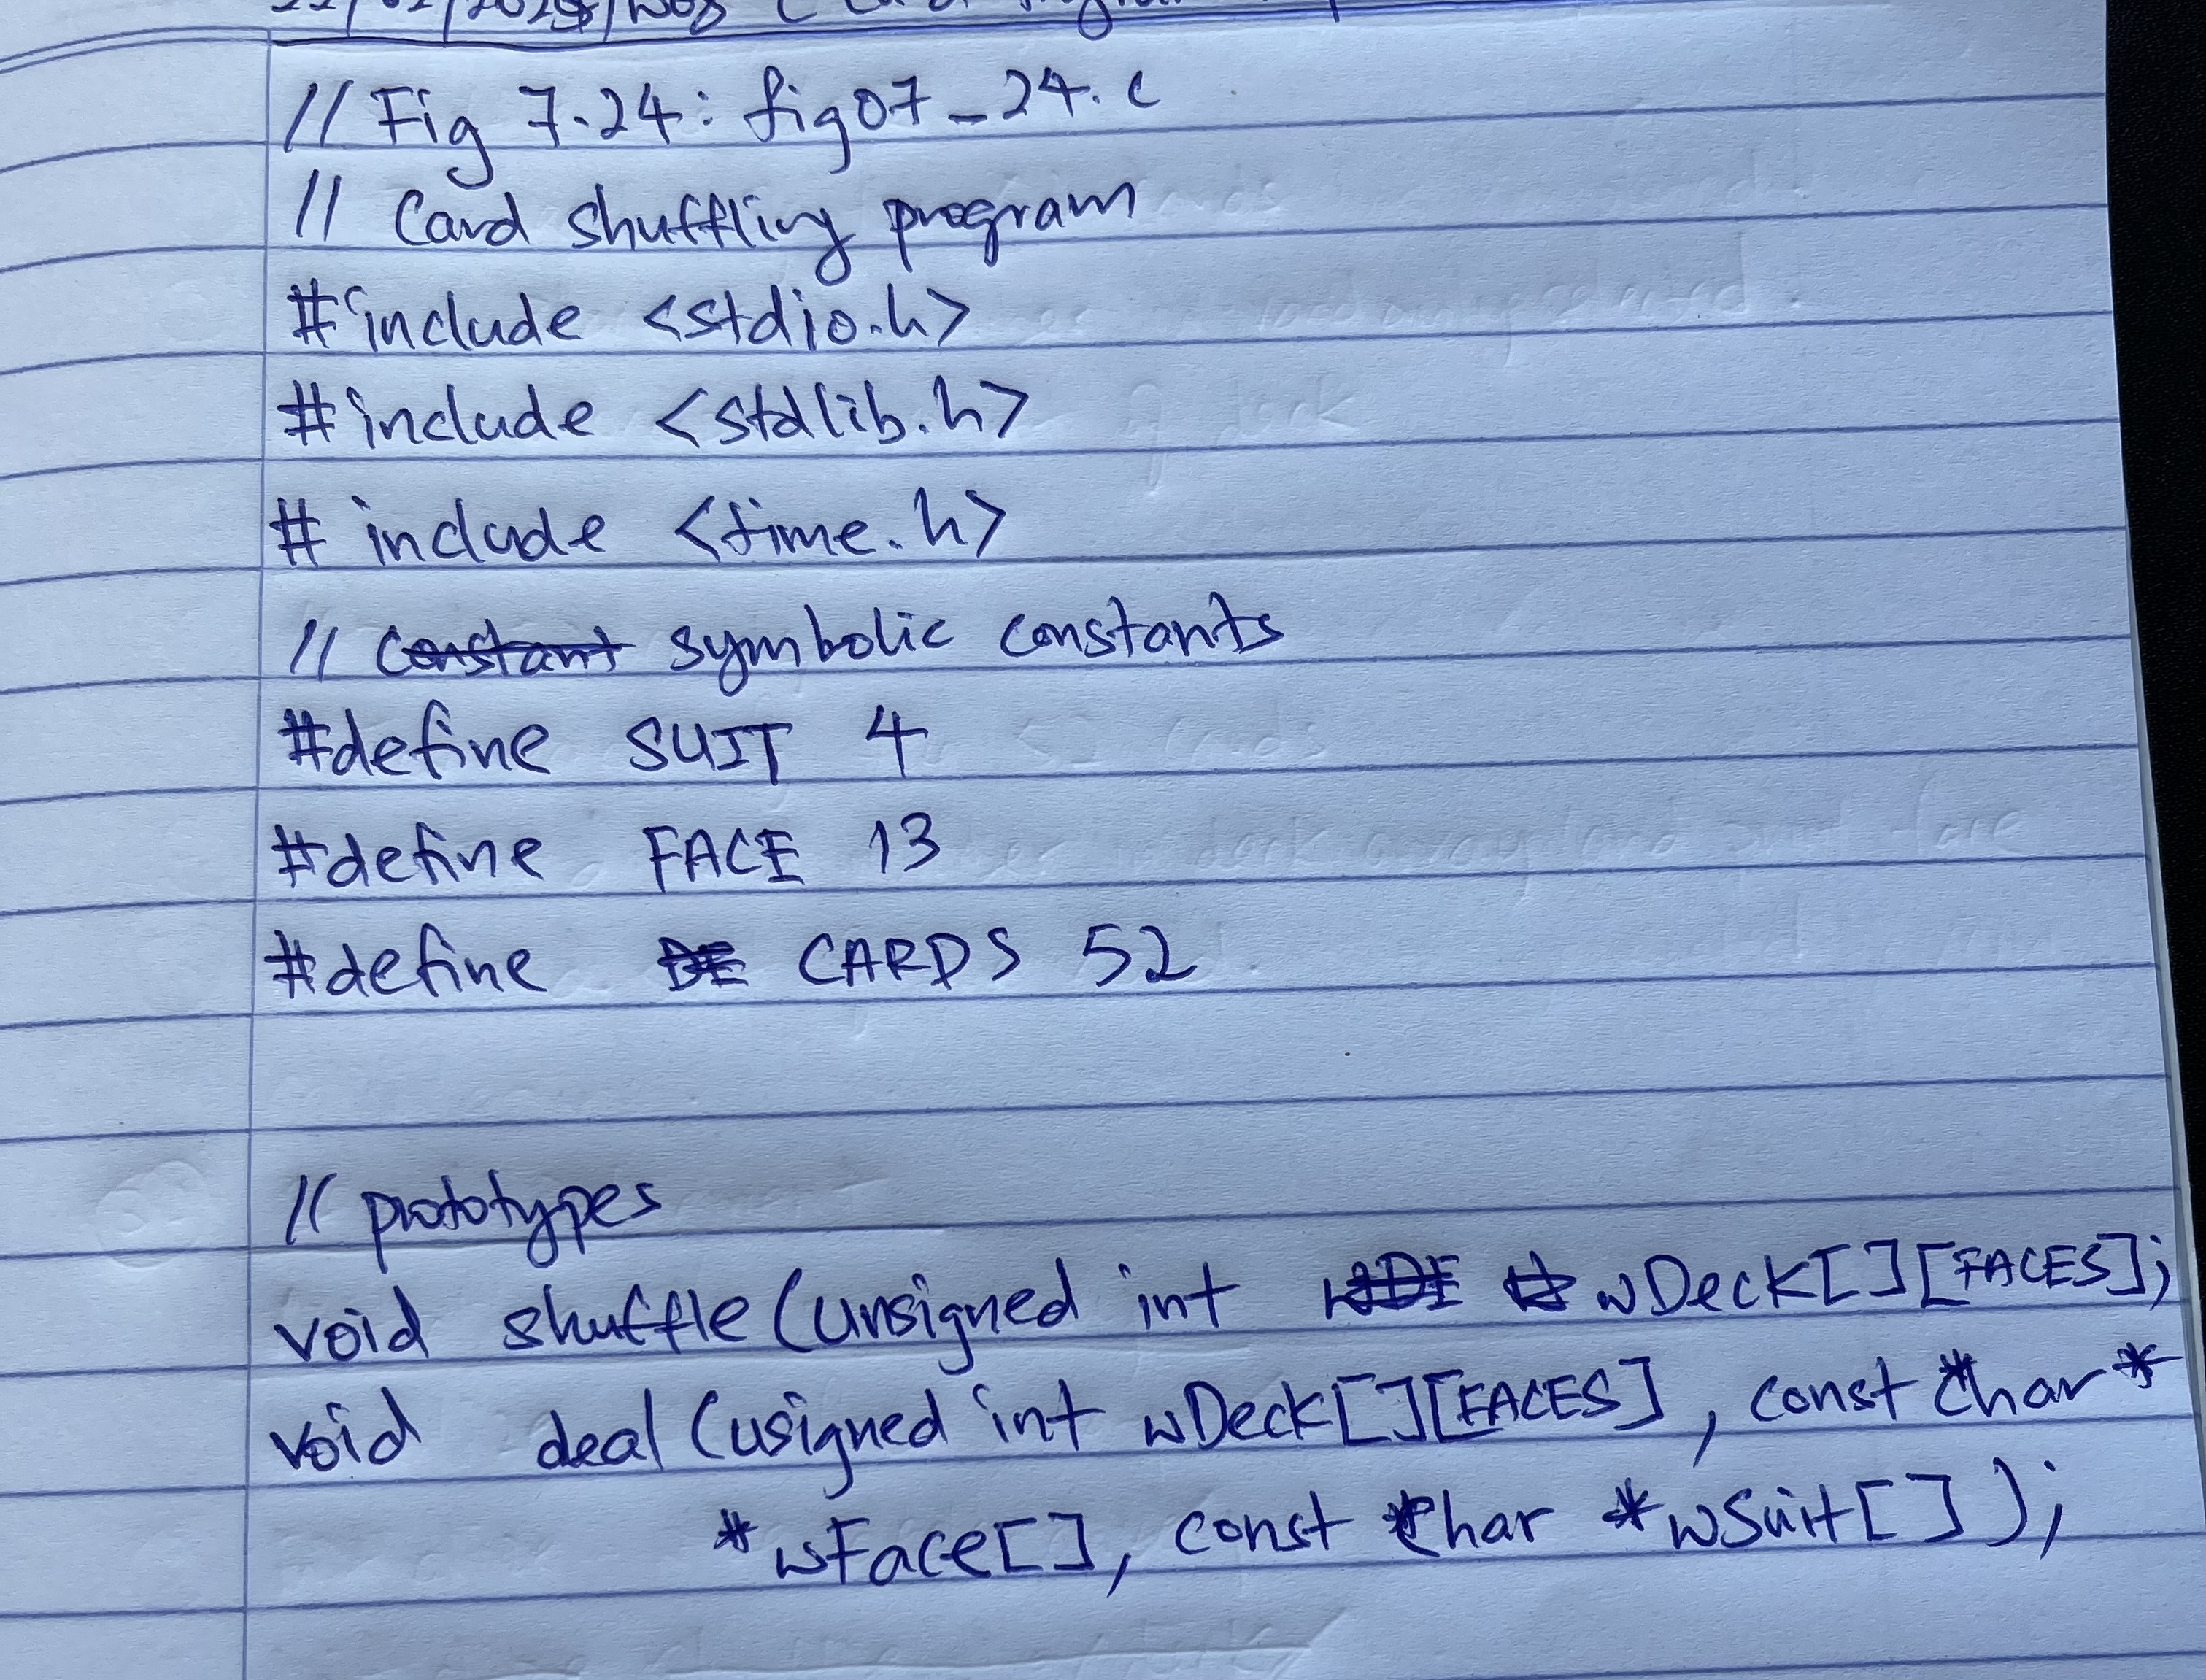 // Fig 7.24: fig07_24.c
// Card shuffling program
#include <stdio.h>
#include <stdlib.h>
# include <time.h>
// constant symbolic constants
#define SUIT 4
#define FACE 13
#define DE CARDS 52
// prototypes
void shuffle (unsigned int wDeck[][FACES];
void deal (usigned int wDeck[][FACES], const char *
*wFace[], const char *wSuit[]);